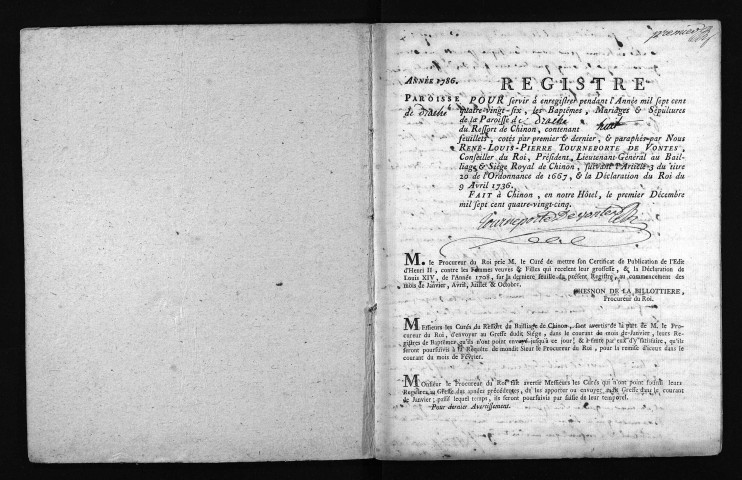 premier
ANNÉE 1786.
REGISTRE
PAROISSE
de draché
POUR servir à enregistrer pendant l'Année mil sept cent
quatre-vingt-six, les Baptêmes, Mariages & Sépultures
de la Paroisse de draché
du Ressort de Chinon, contenant huit
feuillets, cotés par premier & dernier, & paraphés par Nous
RENÉ-LOUIS-PIERRE TOURNEPORTE DE VONTES,
Conseiller du Roi, Président, Lieutenant-Général au Bail-
liage & Siége Royal de Chinon, suivant l'Article 3 du titre
20 de l'Ordonnance de 1667, & la Déclaration du Roi du
9 Avril 1736.
FAIT à Chinon, en notre Hôtel, le premier Décembre
mil sept cent quatre-vingt-cinq.
Tourneporte De vontes
M. le Procureur du Roi prie M. le Curé de mettre son Certificat de Publication de l'Edit
d'Henri II, contre les Femmes veuves & Filles qui recelent leur grossesse, & la Déclaration de
Louis XIV, de l'Année 1708, sur la derniere feuille du présent Registre, au commencement des
mois de Janvier, Avril, Juillet & Octobre.
CHESNON DE LA BILLOTTIERE,
Procureur du Roi.
Messieurs les Curés du Ressort du Bailliage de Chinon, sont avertis de la part de M. le Pro-
cureur du Roi, d'envoyer au Greffe dudit Siége, dans le courant du mois de Janvier, leurs Re-
gistres de Baptêmes qu'ils n'ont point envoyé jusqu'à ce jour; & à faute par eux d'y satisfaire, qu'ils
seront poursuivis à la Requête de mondit Sieur le Procureur du Roi, pour la remise d'iceux dans le
courant du mois de Février.
Monsieur le Procureur du Roi fait avertir Messieurs les Curés qui n'ont point fourni leurs
Registres au Greffe des années précédentes, de les apporter ou envoyer audit Greffe dans le courant
de Janvier; passé lequel temps, ils seront poursuivis par saisie de leur temporel.
Pour dernier Avertissement.